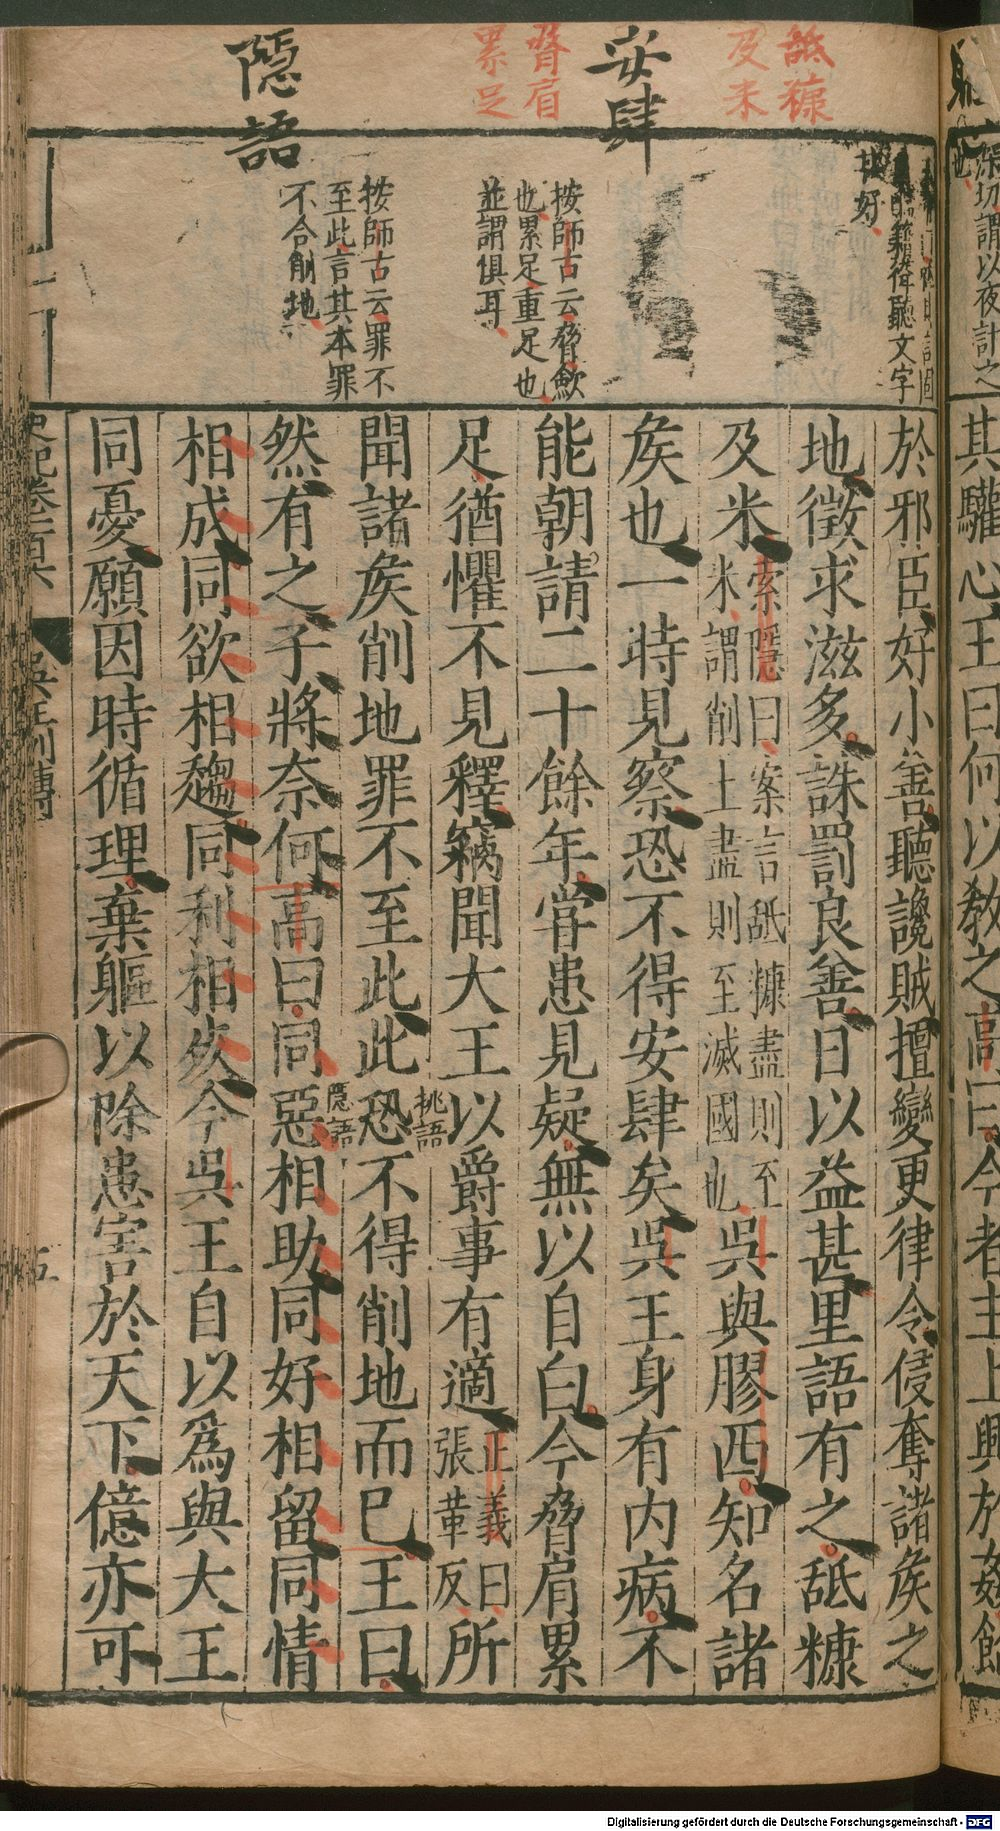 舐糠
及米
安肆
脅肩
累足
隱語
深切謂以夜計之
也
聽文字
好
按師古云脅歛
也累足重足也
並謂俱耳
按師古云罪不
至此言其本罪
不合削地
其驩心王曰何以敎之高曰今者主上興於姦飾
於邪臣好小善聽讒賊擅變更律令侵奪諸矦之
地徵求滋多誅罰良善日以益甚里語有之舐糠
及米
索隱曰案言舐糠盡則至
米謂削土盡則至滅國也
吳與膠西知名諸
矦也一時見察恐不得安肆矣吳王身有内病不
能朝請二十餘年甞患見疑無以自白今脅肩累
足猶懼不見釋竊聞大王以爵事有適
正義曰
張革反
所
挑語
聞諸矦削地罪不至此此恐不得削地而已王曰
隱語
然有之子將奈何高曰同惡相助同好相留同情
相成同欲相趨同利相死今吳王自以爲與大王
同憂願因時循理棄軀以除患害於天下億亦可
史記卷一百六 吳王列傳 五
Digitalisierung gefördert durch die Deutsche Forschungsgemeinschaft - DFG